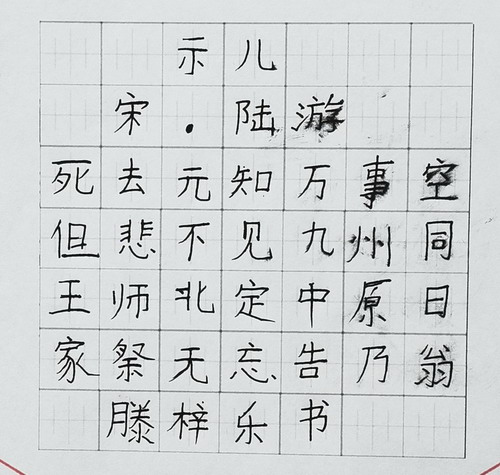 示儿
宋·陆游
死去元知万事空
但悲不见九州同
王师北定中原日
家祭无忘告乃翁
滕梓乐书